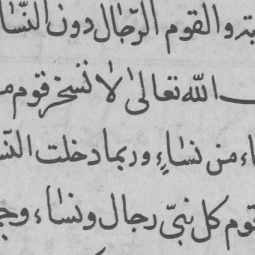 والقوم الرّجال دون النّسا
اللّه تعالىٰ لا تسخر قوم م
ء من نساءٍ وربما دخلت النّس
قوم كل نبيّ رجال ونساء وج